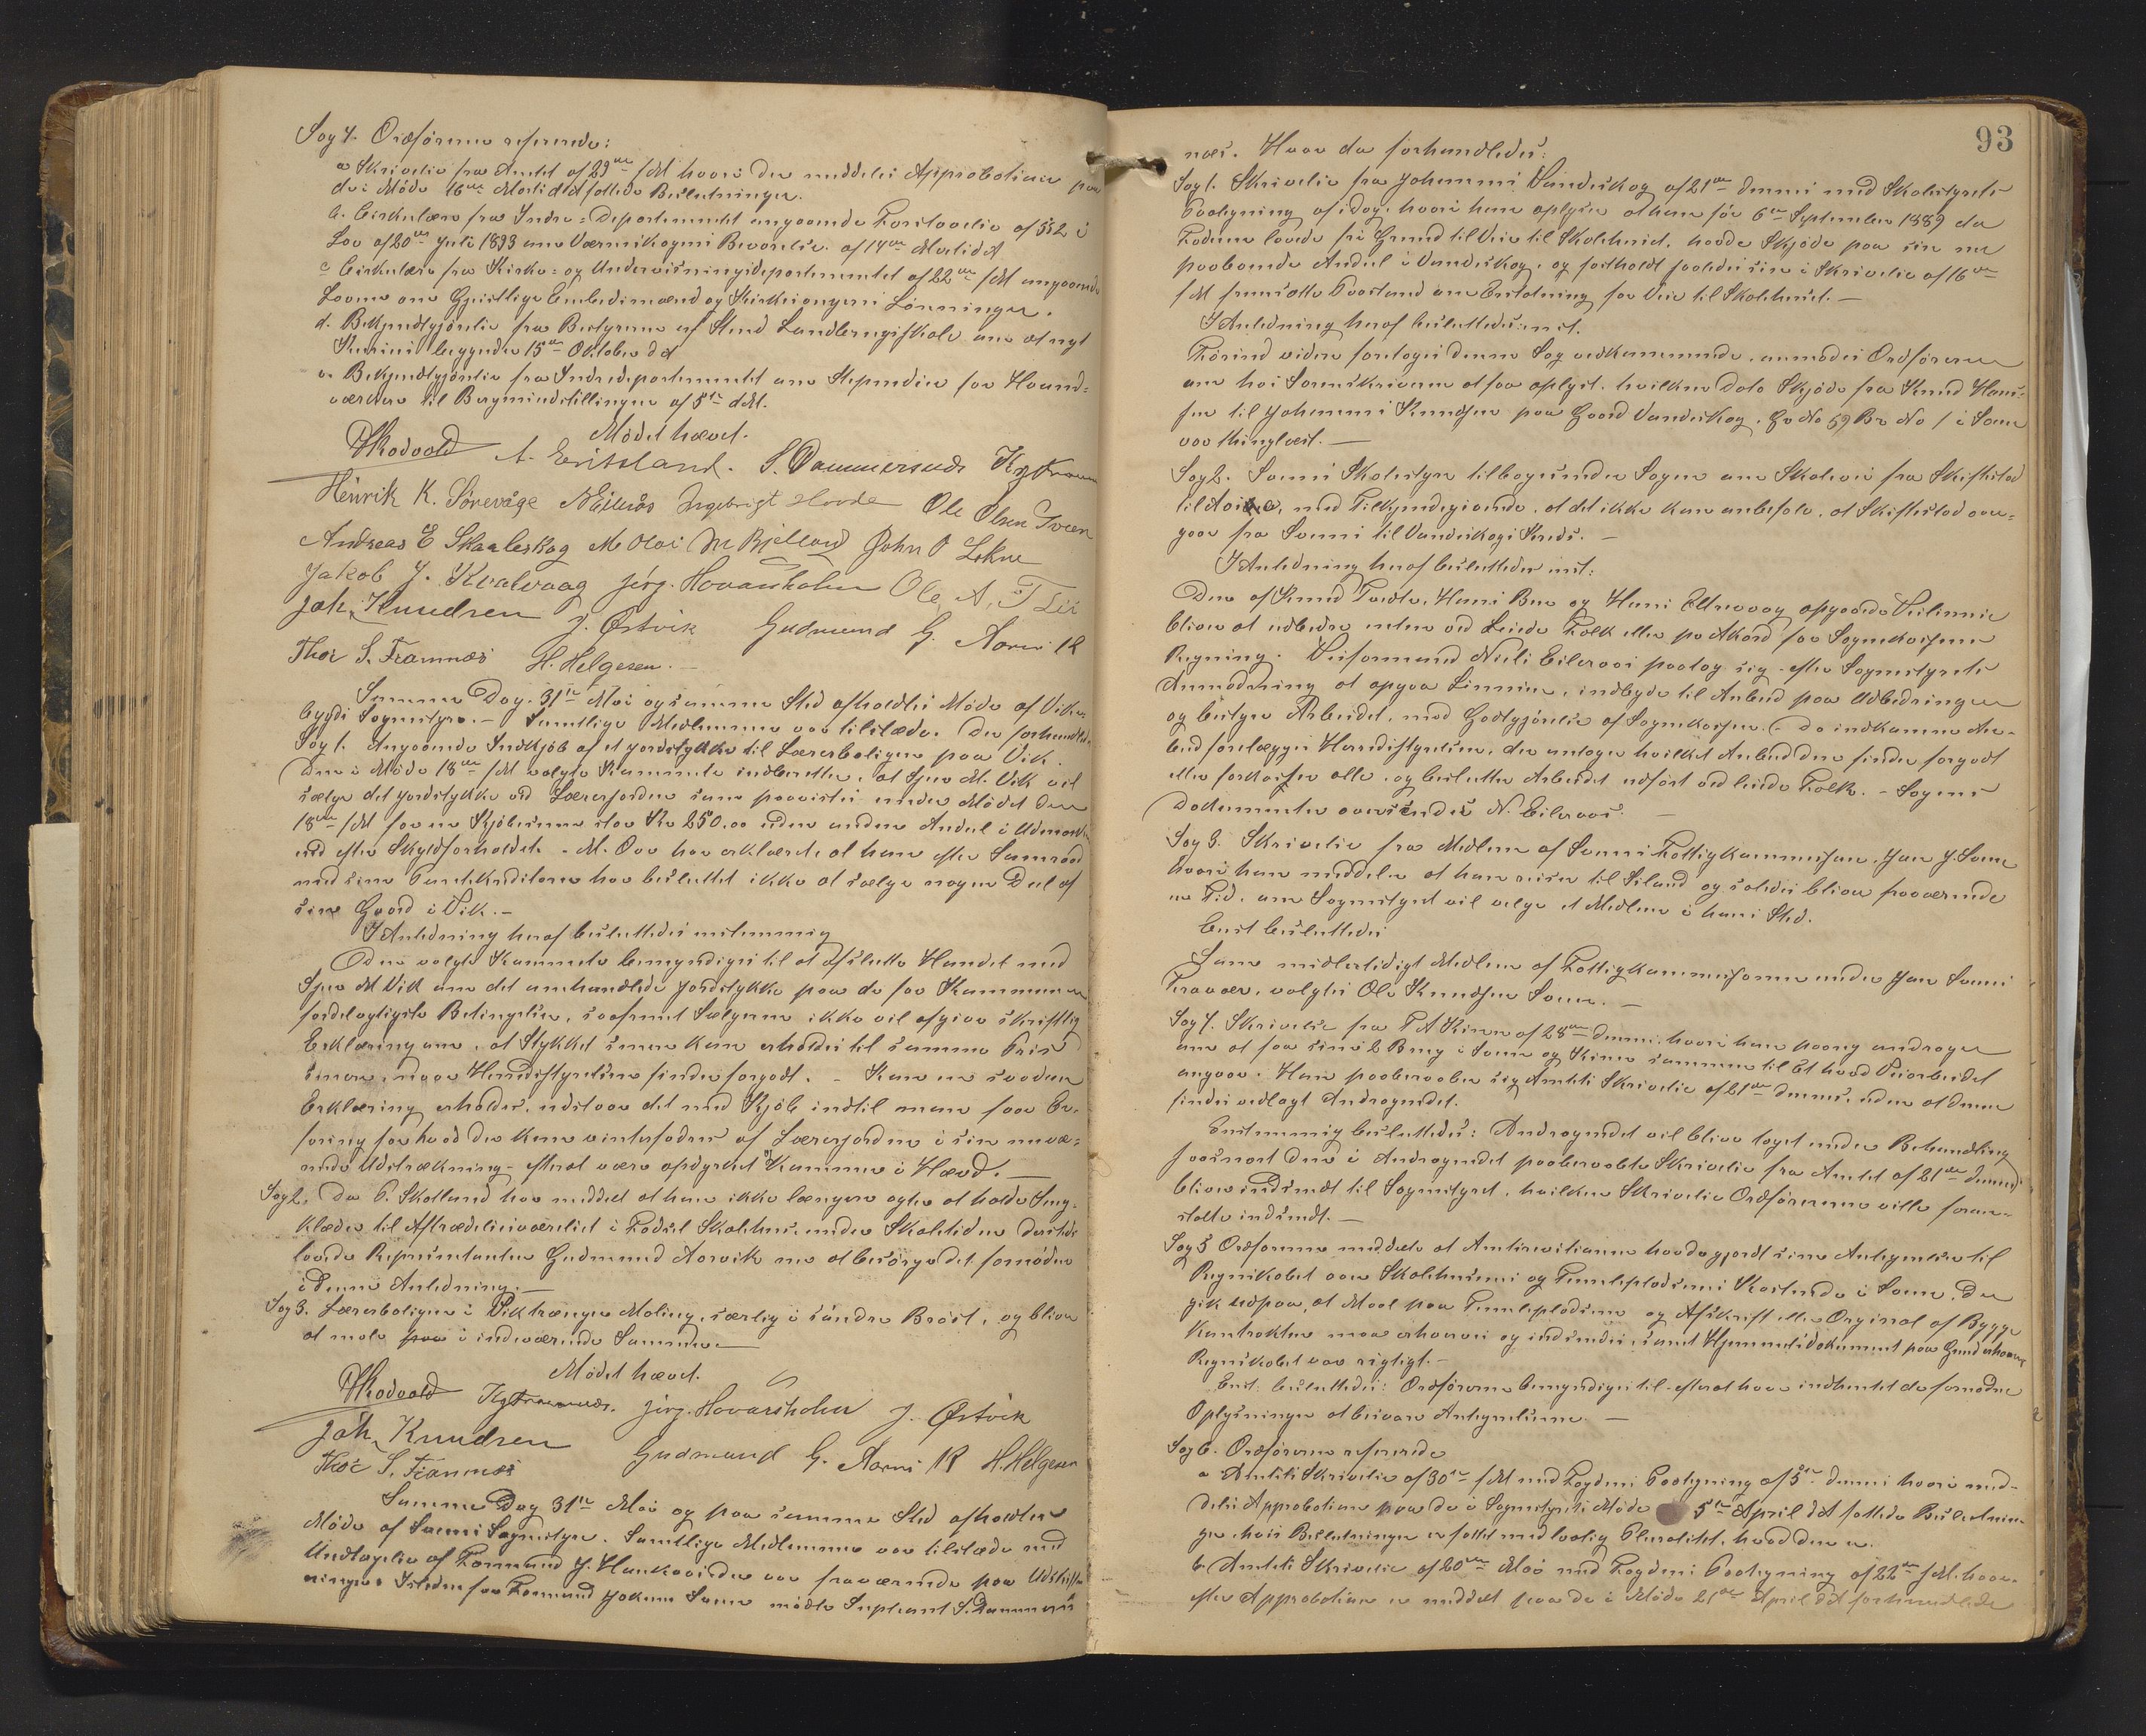 Sag 4. Ordføreren refererede:
a Skrivelse fra Amtet af 29de f M hvori der meddeles Approbation paa
de i Møde 16de Marts d A fattede Beslutninger.
b. Cirkulære fra Indre-Departementet angaaende Forstaaelse af § 52 i
Lov af 20de Juli 1893 om Værnskogens Bevarelse. af 14de Marts d A
c Cirkulære fra Kirke- og Undervisningsdepartementet af 22de f M angaaende
Lovene om Geistlige Embedsmænd og Kirkesangeres Lønninger.
d. Bekjendtgjørelse fra Bestyreren af Stend Landbrugsskole om at nyt
Kursus begynder 15de Oktober d A
e. Bekjendtgjørelse fra Indredepartementet om Stipendier for Haand-
værkere til Bergensudstillingen af 5te d M.
Mødet hævet.
A. Eritsland. S. Dammersnes
Henrik K. Sørevåge N Eilerås Ingebrigt Hovde Ole Olsen Tveen
Andreas E Skaaleskog M Oloi M Bjelland John O Lokne
Jakob J. Kvalvaag Jørg. Hovarsholm Ole A.
Joh. Knudsen J. Østvik Gudmund G. Aarvik
Thor S. Framnæs H. Helgesen.
Samme Dag 31te Mai og samme Sted afholdtes Møde af Vike-
bygds Sognestyre. – Samtlige Medlemmer var tilstæde. Der forhandledes
Sag 1. Angaaende Indkjøb af et Jordstykke til Lærerboligen paa Vik.
Den i Møde 18de f M valgte Kommite indberetter, at Sjur M. Vik vil
sælge det Jordstykke ved Lærerjorden som paavistes under Mødet den
18de f M for en Kjøbesum stor Kr 250.00 uden anden Andel i Udmarken
end efter Skyldforholdet. – M. Aae har erklæret, at han efter Samraad
med sine Pantekreditorer har besluttet ikke at sælge nogen Deel af
sin Gaard i Vik. –
I Anledning heraf besluttedes enstemmig
Den valgte Kommite bemyndiges til at afslutte Handel med
Sjur M Vik om det omhandlede Jordstykke paa de for Kommunen
fordelagtigste Betingelser, saafremt Sælgeren ikke vil afgive skriftlig
Erklæring om, at Stykket senere kan erholdes til samme Pris
senere, naar Herredsstyrelsen finder forgodt. – Kan en saadan
Erklæring erholdes, udstaar det med Kjøb indtil man faar Er-
faring for hvad der kan vinterfodres af Lærerjorden i sin nuvæ-
rende Udstrækning – efterat være opdyrket & kommen i Hævd. –
Sag 2. Da P. Skotland har meddelt at han ikke længere agter at holde Seng-
klæder til Aftrædelsesværelset i Fodsel Skolehus, under Skoletiden dersteds
lovede Repræsentanten Gudmund Aarvik nu at besørge det fornødne
i denne Anledning. –
Sag 3. Lærerboligen i Vik trænger Maling, særlig i søndre Brøst, og bliver
at male i indeværende Sommer. –
Mødet hævet.
Jørg. Hovarsholm J. Østvik
Joh. Knudsen Gudmund G. Aarvik H. Helgesen
Thor S. Framnæs
Samme Dag 31te Mai og paa samme Sted afholdtes
Møde af Søvnes Sognestyre. Samtlige Medlemmer var tilstæde med
Undtagelse af Formand J. der var fraværende paa Udskift-
ninger. Istedenfor Formand Jokum Søvne mødte Supleant S. Dammers-
93
nes. Hvor da forhandledes:
Sag 1. Skrivelse fra Johannes Vandeskog af 21de dennes med Skolestyrets
Paategning af idag, hvori han oplyser at han før 6te September 1889 da
Faderen lovede fri Grund til Vei til Skolehuset, havde Skjøde paa sin nu
paaboende Andel i Vandeskog, og fastholdt saaledes sin i Skrivelse af 16de
f M fremsatte Paastand om Erstatning for Vei til Skolehuset. –
I Anledning heraf besluttedes enst.
Førend videre foretages denne Sag vedkommende, anmodes Ordføreren
om hos Sorenskriveren at faa oplyst, hvilken Dato Skjøde fra Knud Han-
sen til Johannes Knudsen paa Gaard Vandeskog, G. No 59, Br No 1 i Søvne
var thinglæst. –
Sag 2. Søvnes Skolestyre tilbagesender Sagen om Skolevei fra Skiftestad
til med Tilkjendegivende, at det ikke kan anbefale, at Skiftestad over-
gaar fra Søvnes til Vandeskogs Kreds. –
I Anledning heraf besluttedes enst:
Den af Knud Tveite, Hans Bue og Hans opgaaede Veilinie
bliver at udbedre enten ved Leiede Folk eller pr Akord for Sognekassens
Regning. Veiformand Niels Eileraas paatog sig – efter Sognestyrets
Anmodning at opgaa Linien, indbyde til Anbud paa Udbedringen
og bestyre Arbeidet, mod Godtgjørelse af Sognekassen. De indkomne An-
bud forelægges Herredsstyrelsen, der antager hvilket Anbud den finder forgodt
eller forkaster alle, og beslutter Arbeidet udført ved leiede Folk. – Sagens
Dokumenter oversendes N. Eileraas. –
Sag 3. Skrivelse fra Medlem af Søvnes Fattigkommission, Jan J. Søvne
hvori han meddeler at han reiser til Island og saaledes bliver fraværende
en Tid, om Sognestyret vil vælge et Medlem i hans Sted.
Enst besluttedes
Som midlertidigt Medlem af Fattigkommissionen under Jan Søvnes
Fravær, valgtes Ole Knudsen Søvne. –
Sag 4. Skrivelse fra T A Kinn af 28de dennes, hvori han paany andrager
om at faa sine 2 Brug i Søvne og Kinn sammen til Et hvad Veiarbeidet
angaar. Han paaberaaber sig Amtets Skrivelse af 21de dennes, uden at denne
findes vedlagt Andragendet.
Enstemmig besluttedes: Andragendet vil blive taget under Behandling
saasnart den i Andragendet paaberaabte Skrivelse fra Amtet af 21de dennes
bliver indsendt til Sognestyret, hvilken Skrivelse Ordføreren ville foran-
stalte indsendt. –
Sag 5 Ordføreren meddelte at Amtsrevisionen havde gjordt sine Antegnelser til
Regnskabet over Skolehusenes og Familiepladsenes Kostende i Søvne. De
gik ud paa, at Maal paa Familiepladsene og Afskrift eller Orginal af Bygge
Kontrakten maa erhverves og indsendes, samt Hjemmelsdokument paa Grund erhverves
Regnskabet var rigtigt. –
Enst. besluttedes: Ordføreren bemyndiges til – efterat have indhentet de fornødne
Oplysninger at besvare Antegnelserne. –
Sag 6. Ordføreren refererede
a Amtets Skrivelse af 30te f M med Fogdens Paategning af 5te dennes hvori med-
deles Approbation paa de i Sognestyrets Møde 5te April d A fattede Beslutnin-
ger, hvis Beslutningen er fattet med lovlig Pluralitet, hvad den er.
b Amtets Skrivelse af 20de Mai med Fogdens Paategning af 22de f M. hvor-
efter Approbation er meddelt paa de i Møde 21de April d A forhandlede